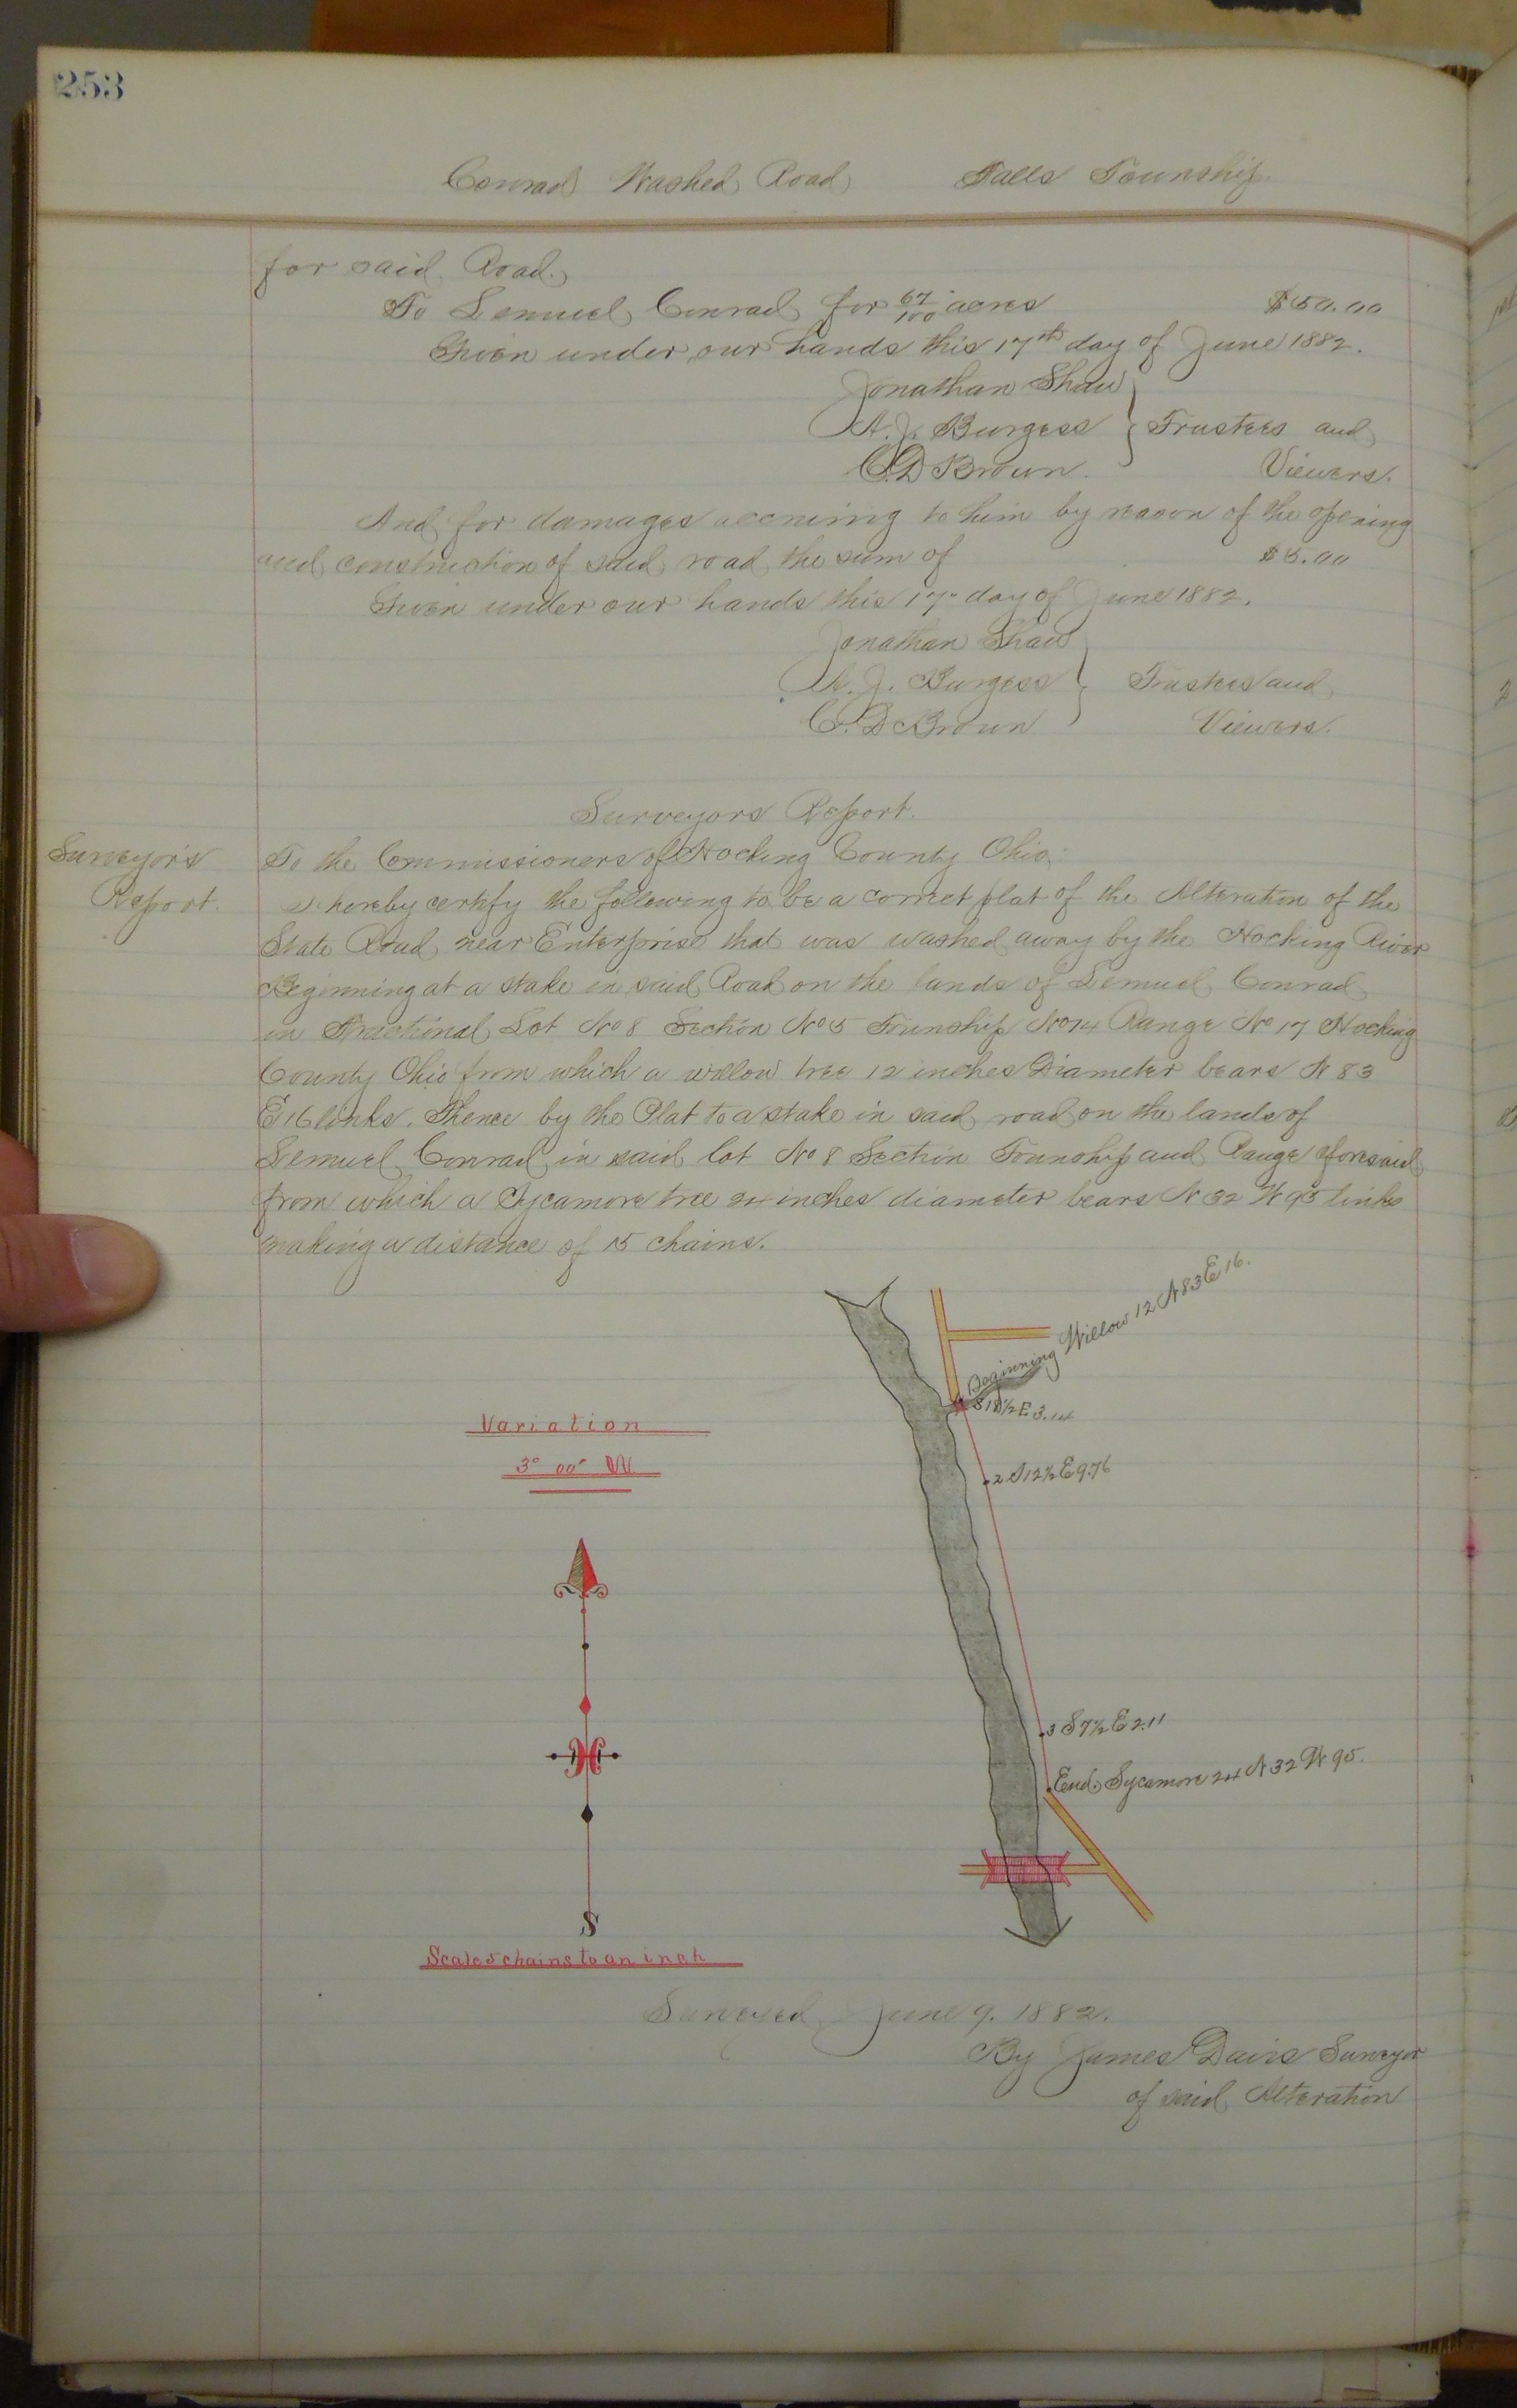 253
Conrad Washed Road Falls Township.
for said Road.
To Lemuel Conrad for 67/100 acres $50.00
Given under our hands this 17th day of June 1882.
Jonathan Shaw
A. J. Burgess } Trustees and
C. D Brown. Viewers.
And for damages accruing to him by reason of the opening
and construction of said road the sum of $5.00
Given under our hands this 17" day of June 1882.
Jonathan Shaw
A. J. Burgess } Trustees and
C. D Brown Viewers.
Surveyors Report.
Surveyor's
Report.
To the Commissioners of Hocking County Ohio:
I hereby certify the following to be a correct plat of the Alteration of the
State Road near Enterprise that was washed away by the Hocking River
Beginning at a stake in said Road on the lands of Lemuel Conrad
in Fractional Lot No 8 Section No 5 Township No 14 Range No 17 Hocking
County Ohio from which a willow tree 12 inches Diameter bears N 83
E 16 links. Thence by the Plat to a stake in said road on the lands of
Lemuel Conrad in said lot No 8 Section Township and Range aforesaid
from which a Sycamore tree 24 inches diameter bears N 32 W 95 links
making a distance of 15 chains.
Beginning Willow 12 N 83 E 16.
S 18½ E 3.14
Variation
3° 00' W
2 S 12½ E 9.76
3 S 7½ E 2.11
End. Sycamore 24 N 32 W 95.
S
Scale 5 chains to an inch
Surveyed June 9. 1882.
By James Davis Surveyor
of said Alteration